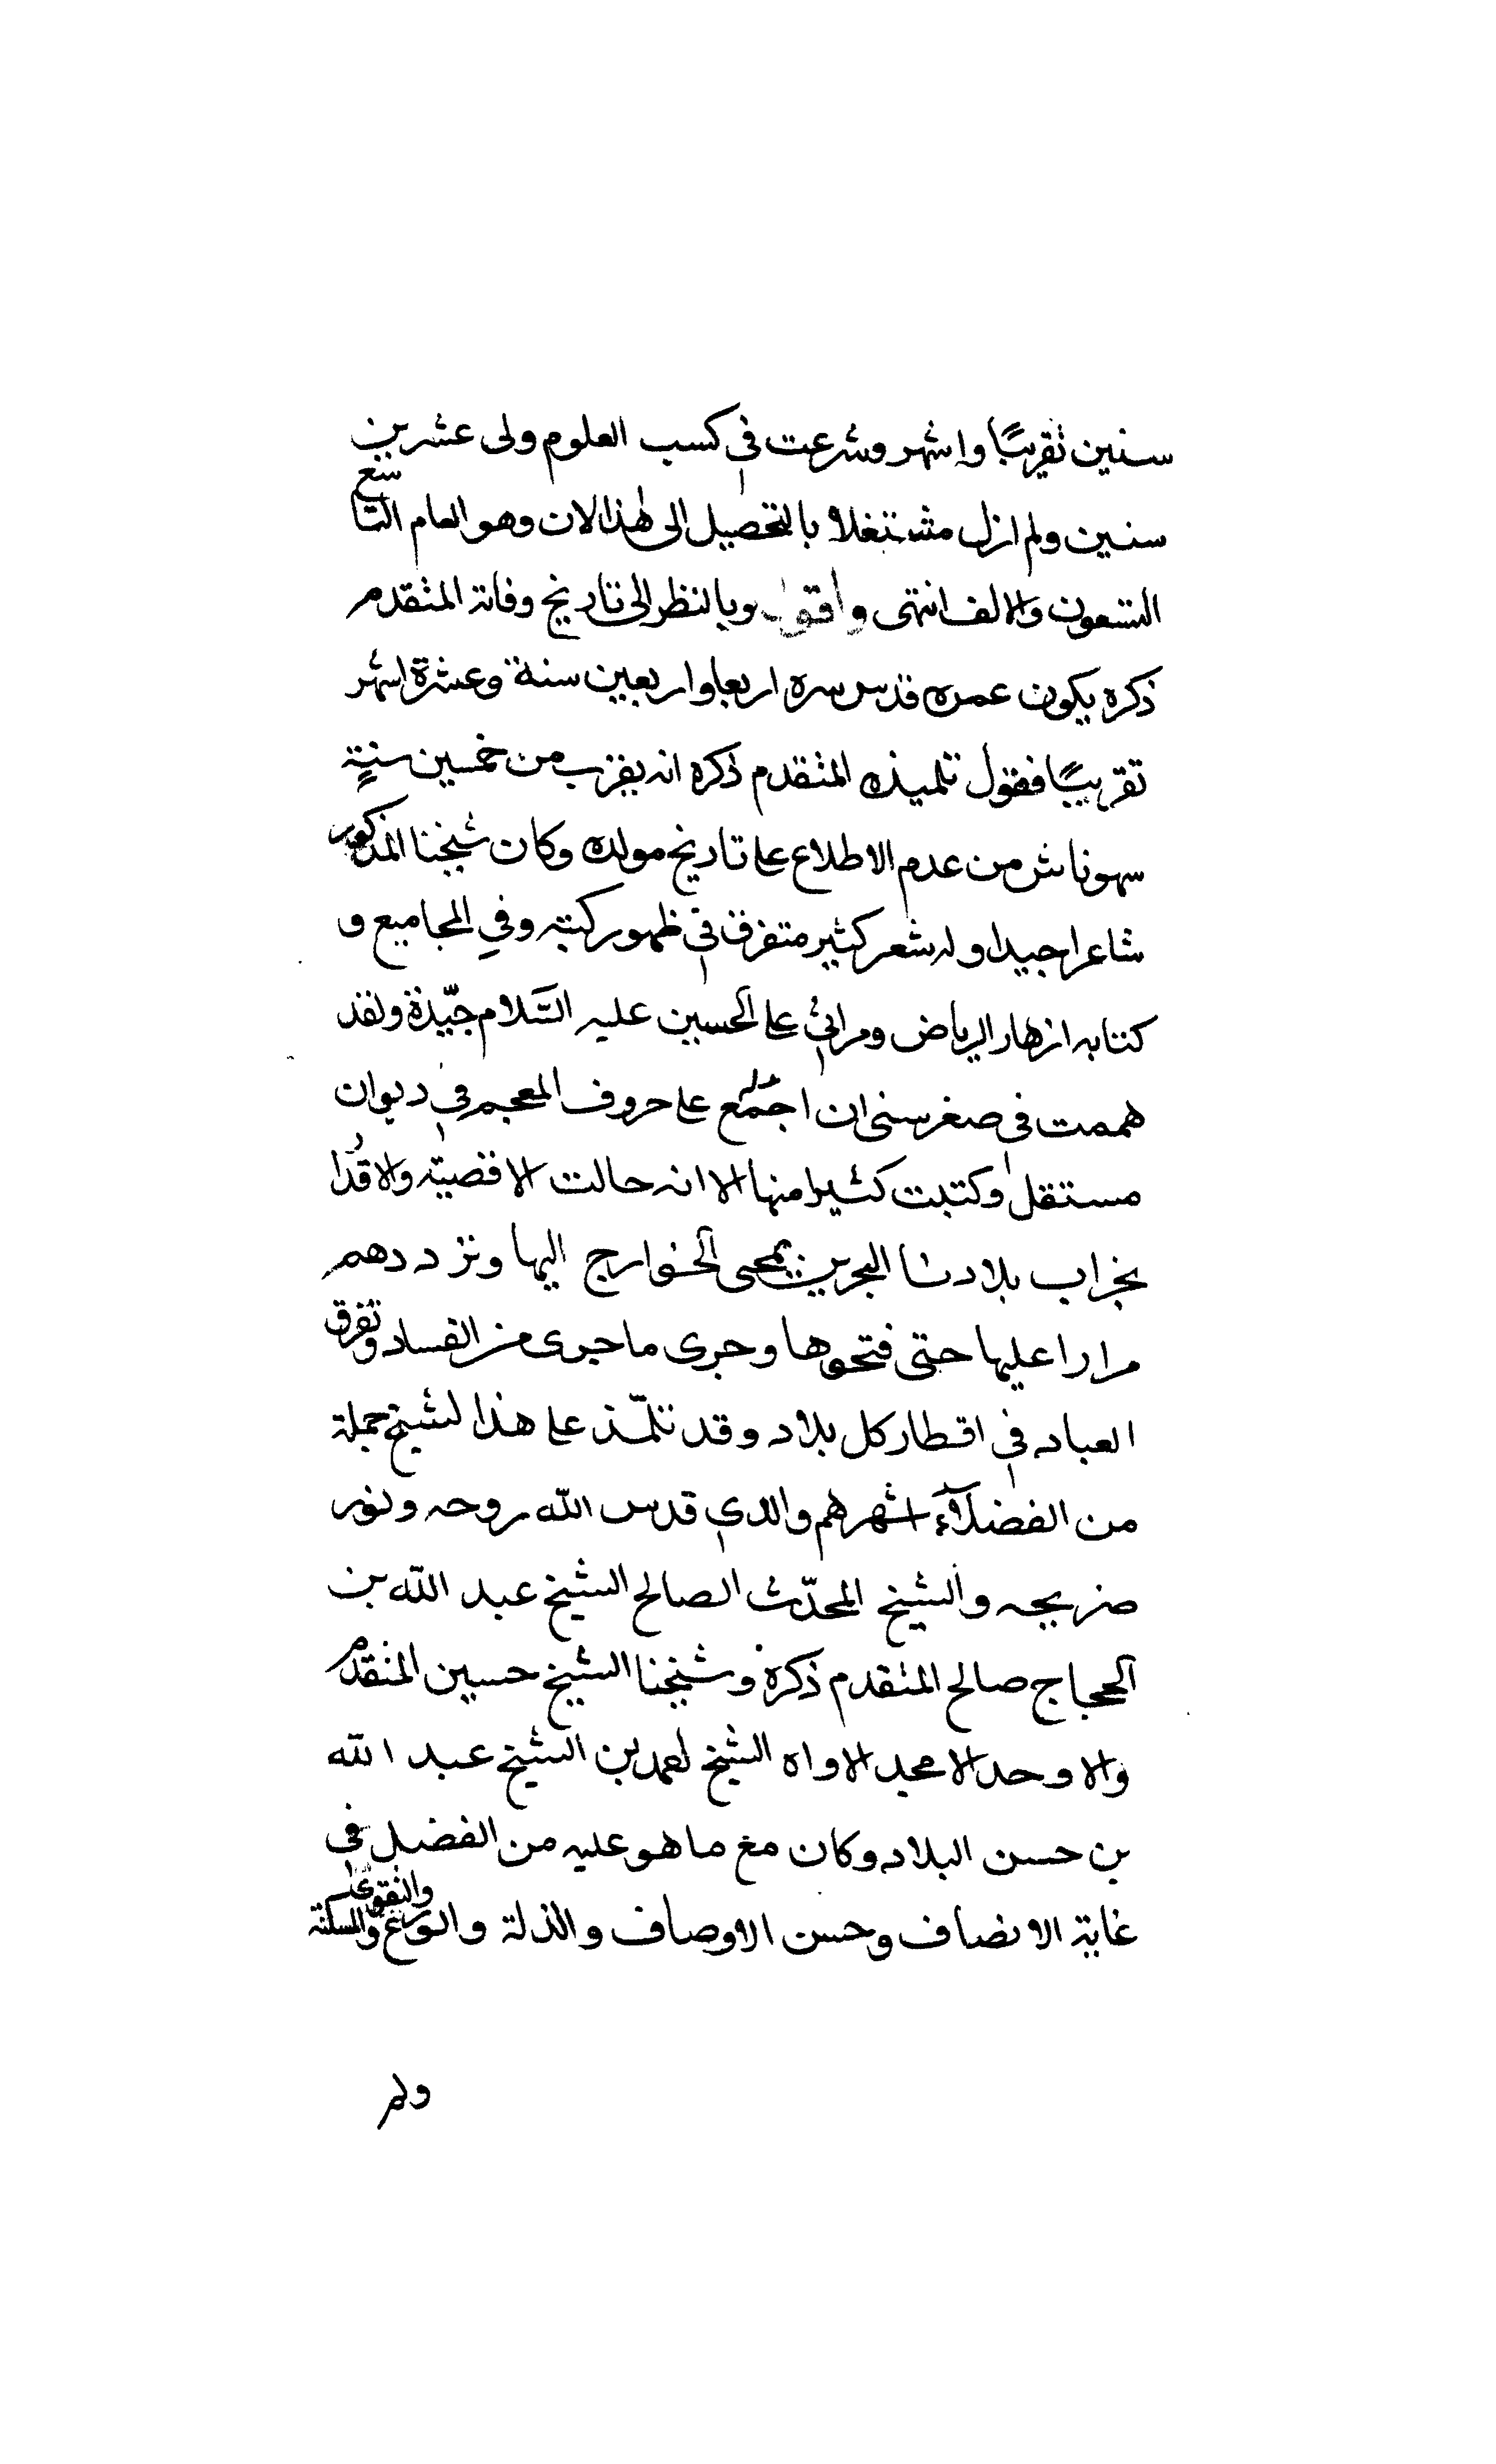 سنين تقريبًا واشهر وشرعت في كسب العلوم ولى عشرين
سنين ولم ازل مشتغلا بالتحصيل الى هذا الان وهو العام التاسع
التسعون والالف انتهى واقول وبالنظر الى تاريخ وفاته المتقدم
ذكره يكون عمره قدس سره اربعا واربعين سنة وعشرة اشهر
تقريبًا فقول تلميذه المتقدم ذكره انه يقرب من خمسين سنة
سهو ناش من عدم الاطلاع على تاريخ مولده وكان شيخنا المذكور
شاعرا جيدا وله شعر كثير متفرق في ظهور كتبه وفي المجاميع و
كتابه ازهار الرياض ومراثي على الحسين عليه السّلام جيّدة ولقد
هممت في صغر سنى ان اجمع على حروف المعجم في ديوان
مستقل وكتبت كثيرا منها الا انه حالت الاقضية والاقدار
بخراب بلادنا البحرين بمجى الخوارج اليها وترددهم
مرارا عليها حتى فتحوها وجرى ما جرى من الفساد وتفرق
العباد في اقطار كل بلاد وقد تلمّذ على هذا لشيخ جملة
من الفضلاء اشهرهم والدي قدس الله روحه ونور
ضريحه والشيخ المحدّث الصالح الشيخ عبد الله بن
الحجاج صالح المتقدم ذكره وشيخنا الشيخ حسين المتقدم
والاوحد الامجد الاواه الشيخ احمد بن الشيخ عبد الله
بن حسن البلاد وكان مع ما هو عليه من الفضل في
غاية الانصاف وحسن الاوصاف والذلة والورع والتقوى والمسكنة
ولم